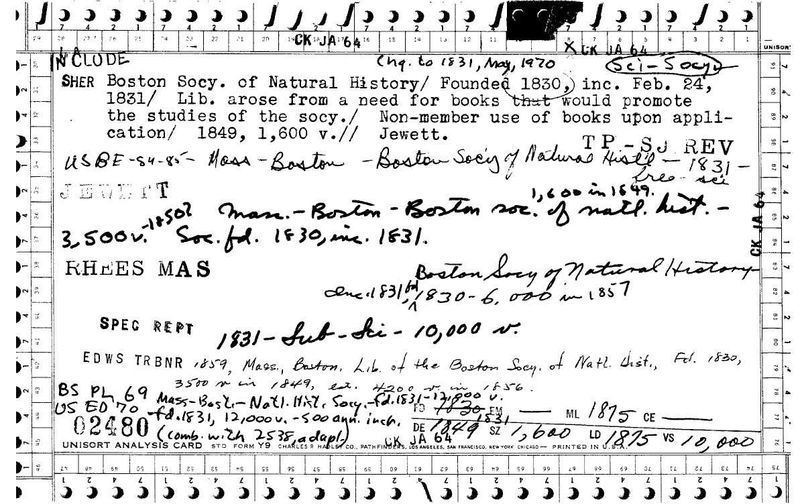 CK JA 64
X CK JA 64
INCLUDE
Chg. to 1831, May, 1970
Sci-Socy.
UNISORT
SHER Boston Socy. of Natural History/ Founded 1830, inc. Feb. 24,
1831/ Lib. arose from a need for books that would promote
the studies of the socy./ Non-member use of books upon appli-
cation/ 1849, 1,600 v.// Jewett.
TP-SJ REV
USBE-84-85- Mass-Boston -Boston Soc'y of Natural Hist'l-1831-
sci
JEWETT
1,600 in 1849.
Mass.-Boston-Boston soc. of natl. hist.-
3,500 v.-1850? Soc. fd. 1830, inc. 1831.
CK JA 64
RHEES MAS
Boston Socy of Natural History
inc. 1831 fd. 1830-6,000 in 1857
SPEC REPT
1831-Sub-Sci-10,000 v.
EDWS TRBNR 1859, Mass., Boston, Lib. of the Boston Socy. of Natl. Hist., Fd. 1830,
3500 v in 1849, est. 4200 v. in 1856.
BS PL 69 Mass-Bost.-Natl. Hist. Socy.-fd. 1831-12,000 v.
US ED 70 -fd. 1831, 12,000 v.-500 ann. inch.
FD 1830 EM — ML 1875 CE —
1831
02480 (comb. with 2538, adapl.)
CK JA 64
DE 1849 SZ 1,600 LD 1875 VS 10,000
UNISORT ANALYSIS CARD STD FORM Y9 CHARLES R HADLEY CO., PATHFINDERS, LOS ANGELES, SAN FRANCISCO, NEW YORK CHICAGO — PRINTED IN U.S.A.